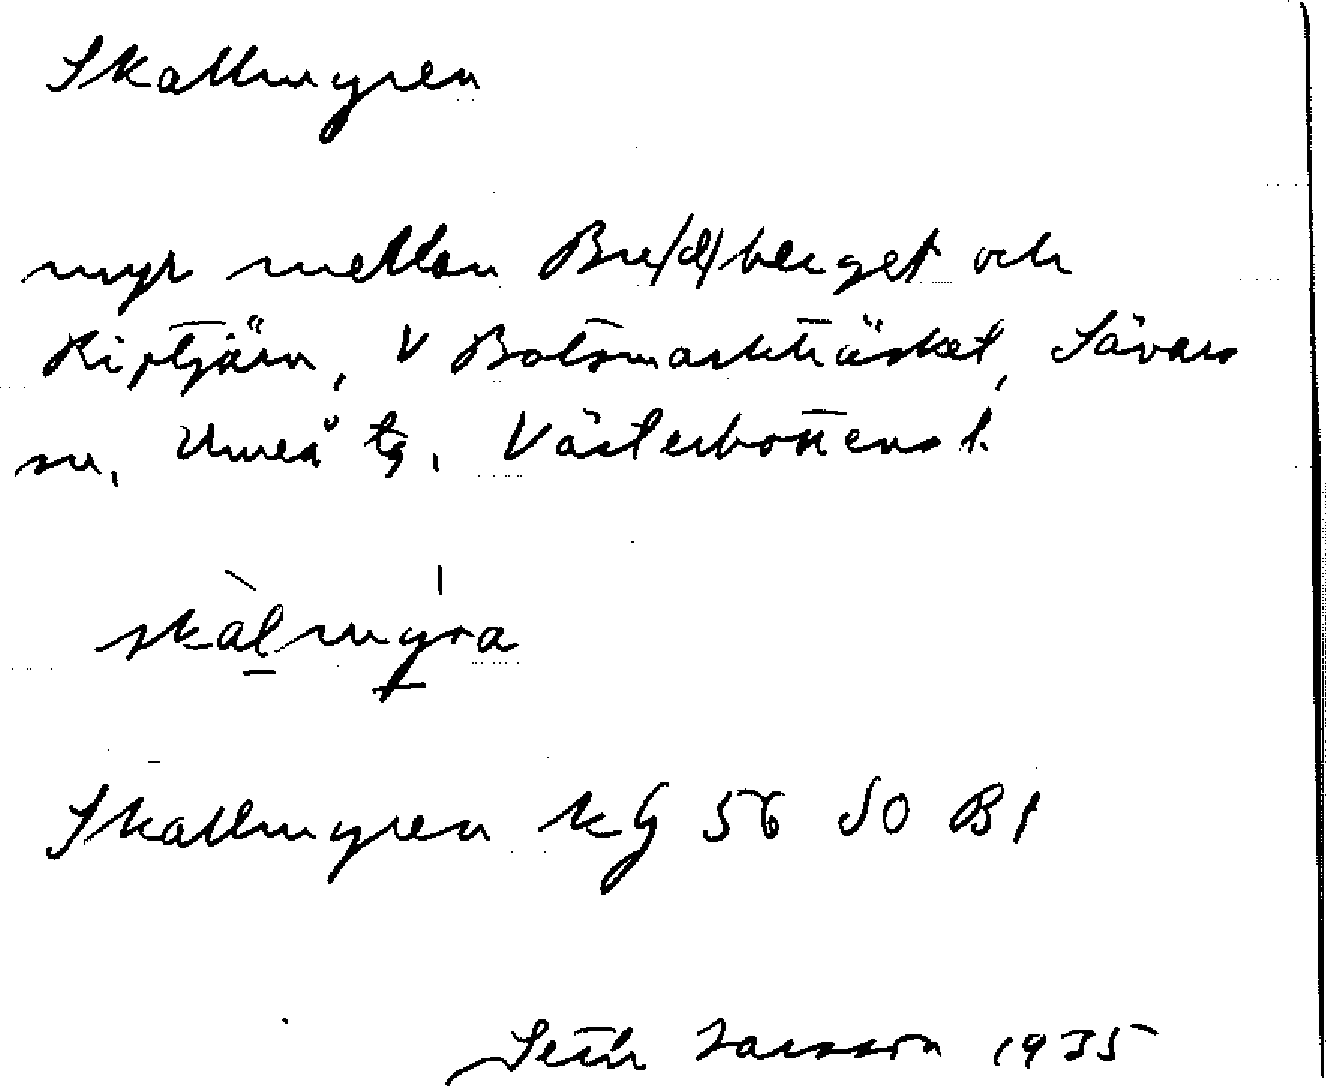 Skallmyren
myr mellan Bre/d/berget och
Riptjärn, V Botsmarkträsket, Sävars
sn, Umeå tg. Västerbottens l.
skàlmy̍ra
Skallmyren kG 56 SO B1
Seth Larsson 1935